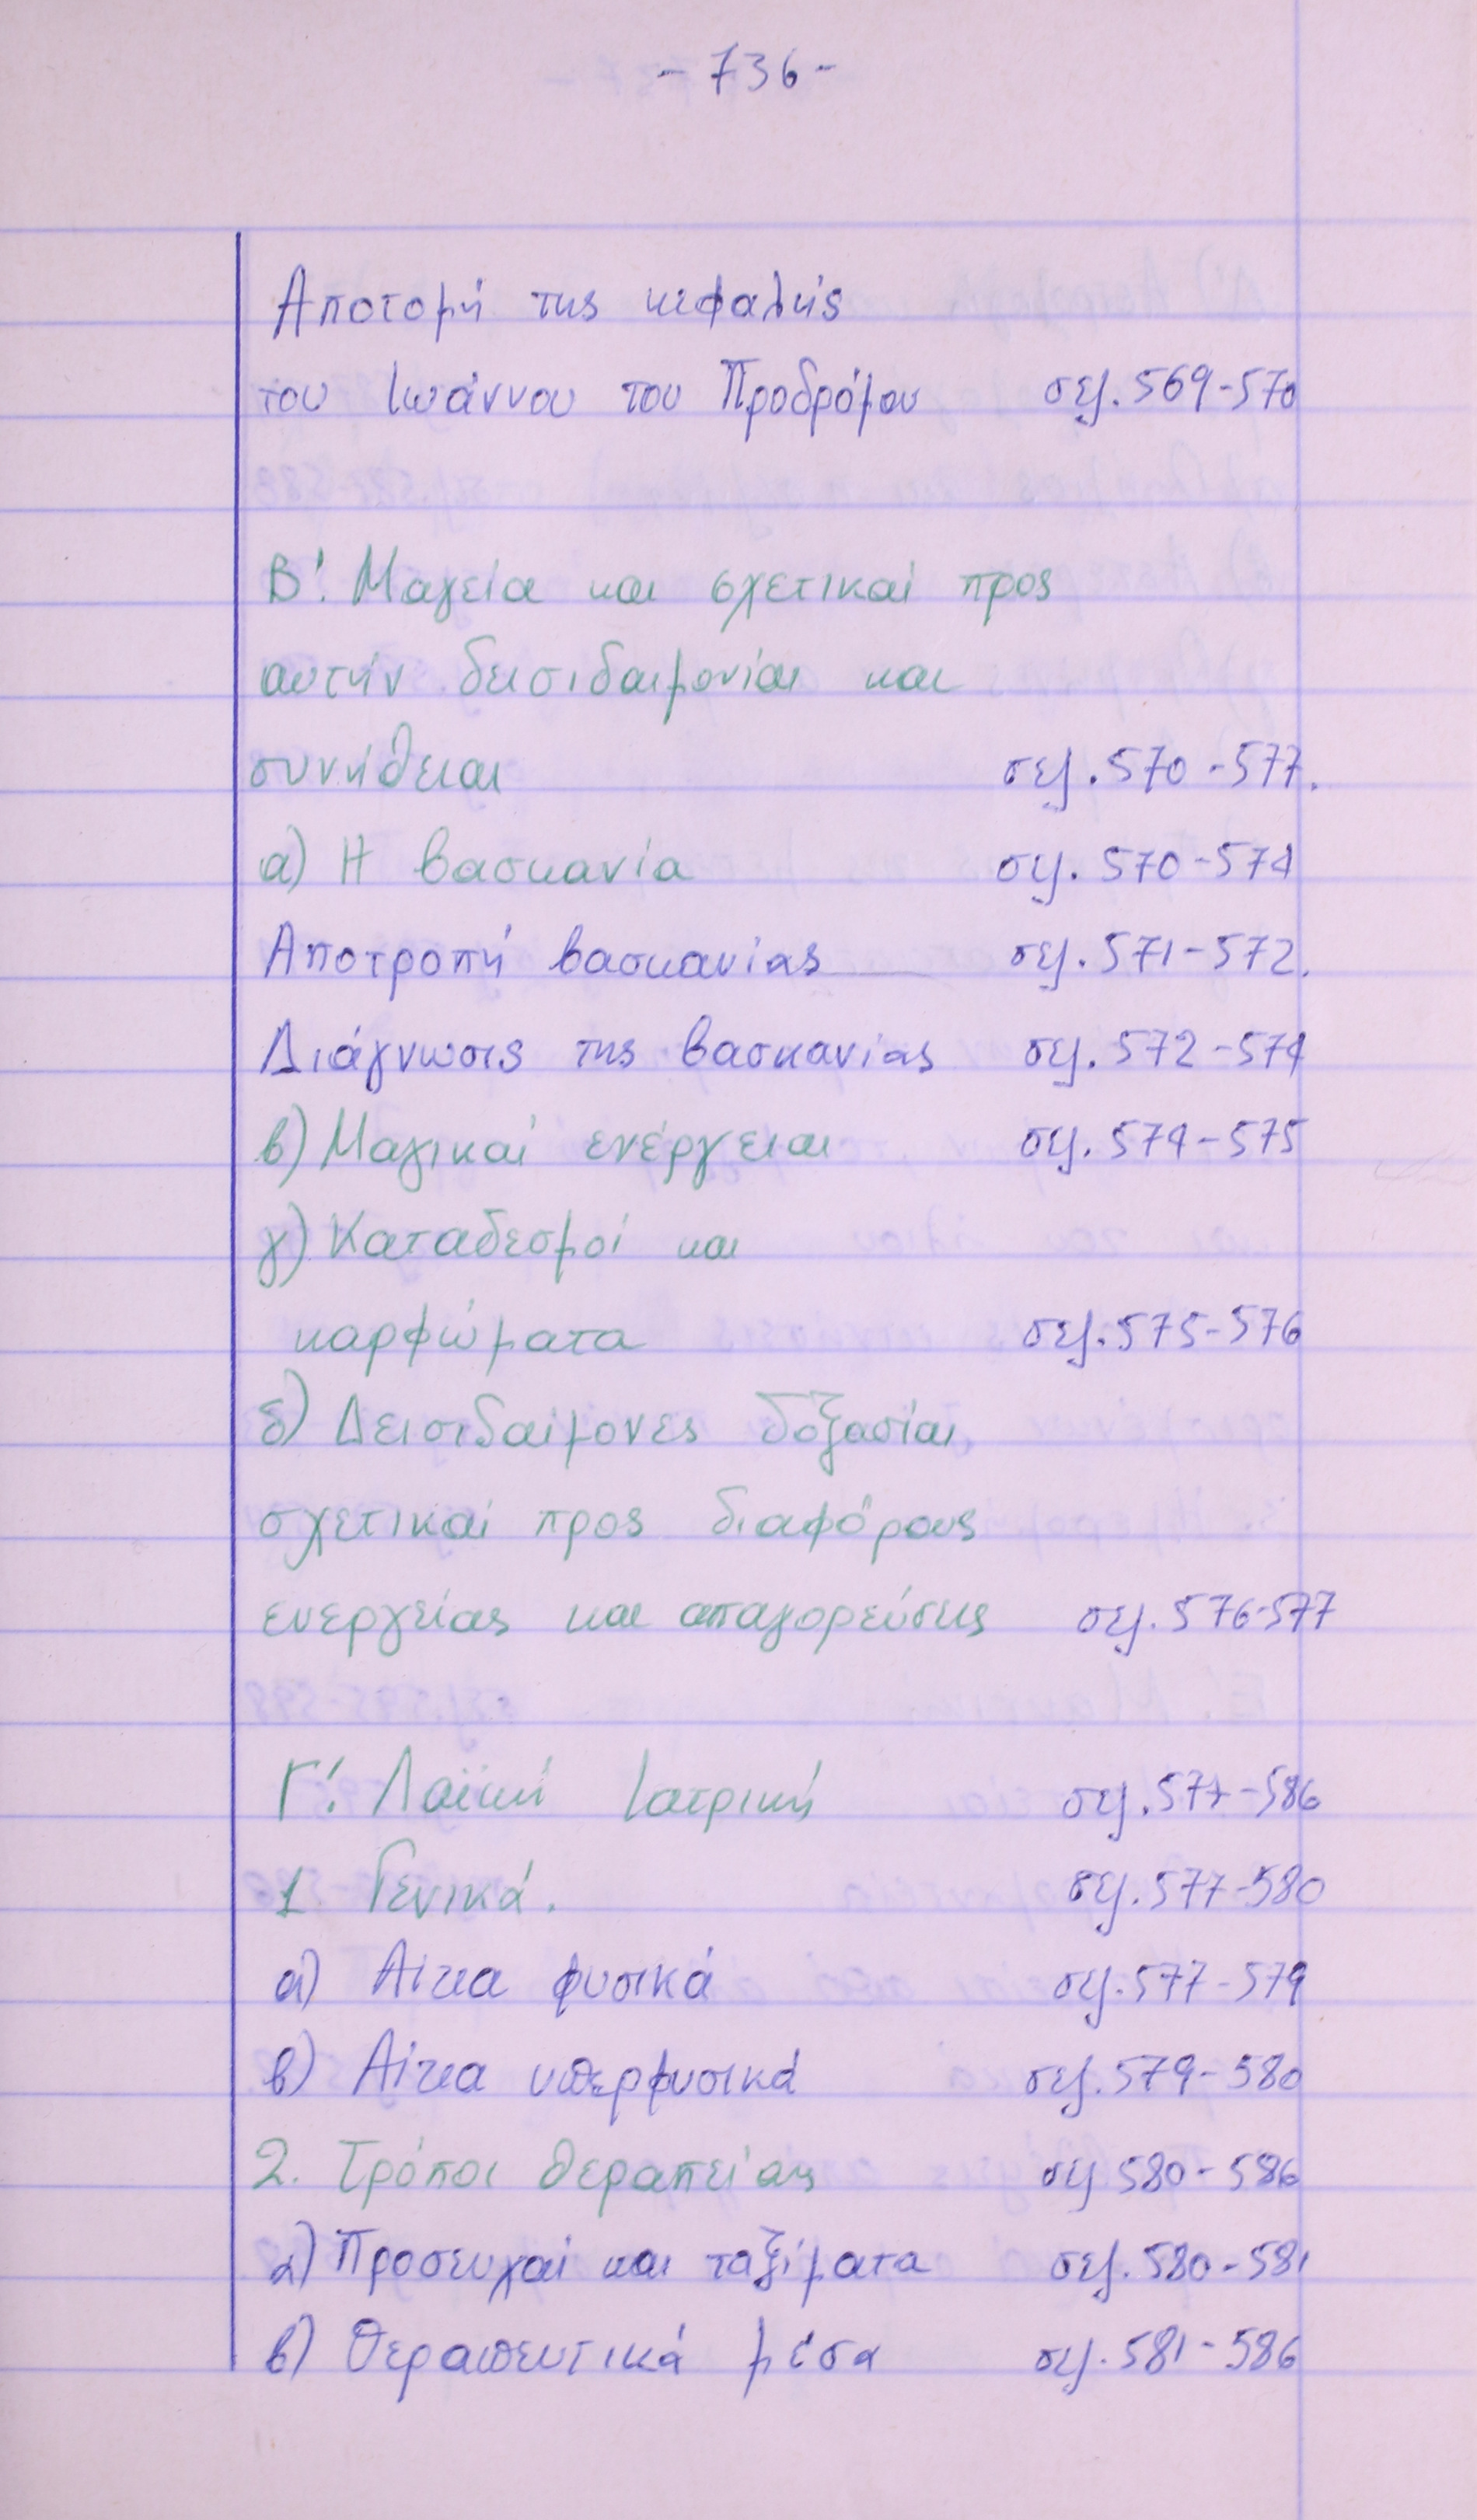 - 736 -
Αποτομή της κεφαλής
του Ιωάννου του Προδρόμου σελ. 569-570
Β'. Μαγεία και σχετικαί προς
αυτήν δεισιδαιμονίαι και
συνήθειαι σελ. 570-577.
α) Η βασκανία σελ. 570-574
Αποτροπή βασκανίας σελ. 571-572.
Διάγνωσις της βασκανίας σελ. 572-574
β) Μαγικαί ενέργειαι σελ. 574-575
γ) Καταδεσμοί και
καρφώματα σελ. 575-576
δ) Δεισιδαίμονες δοξασίαι
σχετικαί προς διαφόρους
ενεργείας και απαγορεύσεις σελ. 576-577
Γ'. Λαϊκή Ιατρική σελ. 577-586
1. Γενικά. σελ. 577-580
α) Αίτια φυσικά σελ. 577-579
β) Αίτια υπερφυσικά σελ. 579-580
2. Τρόποι θεραπείας σελ 580-586
α) Προσευχαί και ταξίματα σελ. 580-581
β) Θεραπευτικά μέσα σελ. 581-586